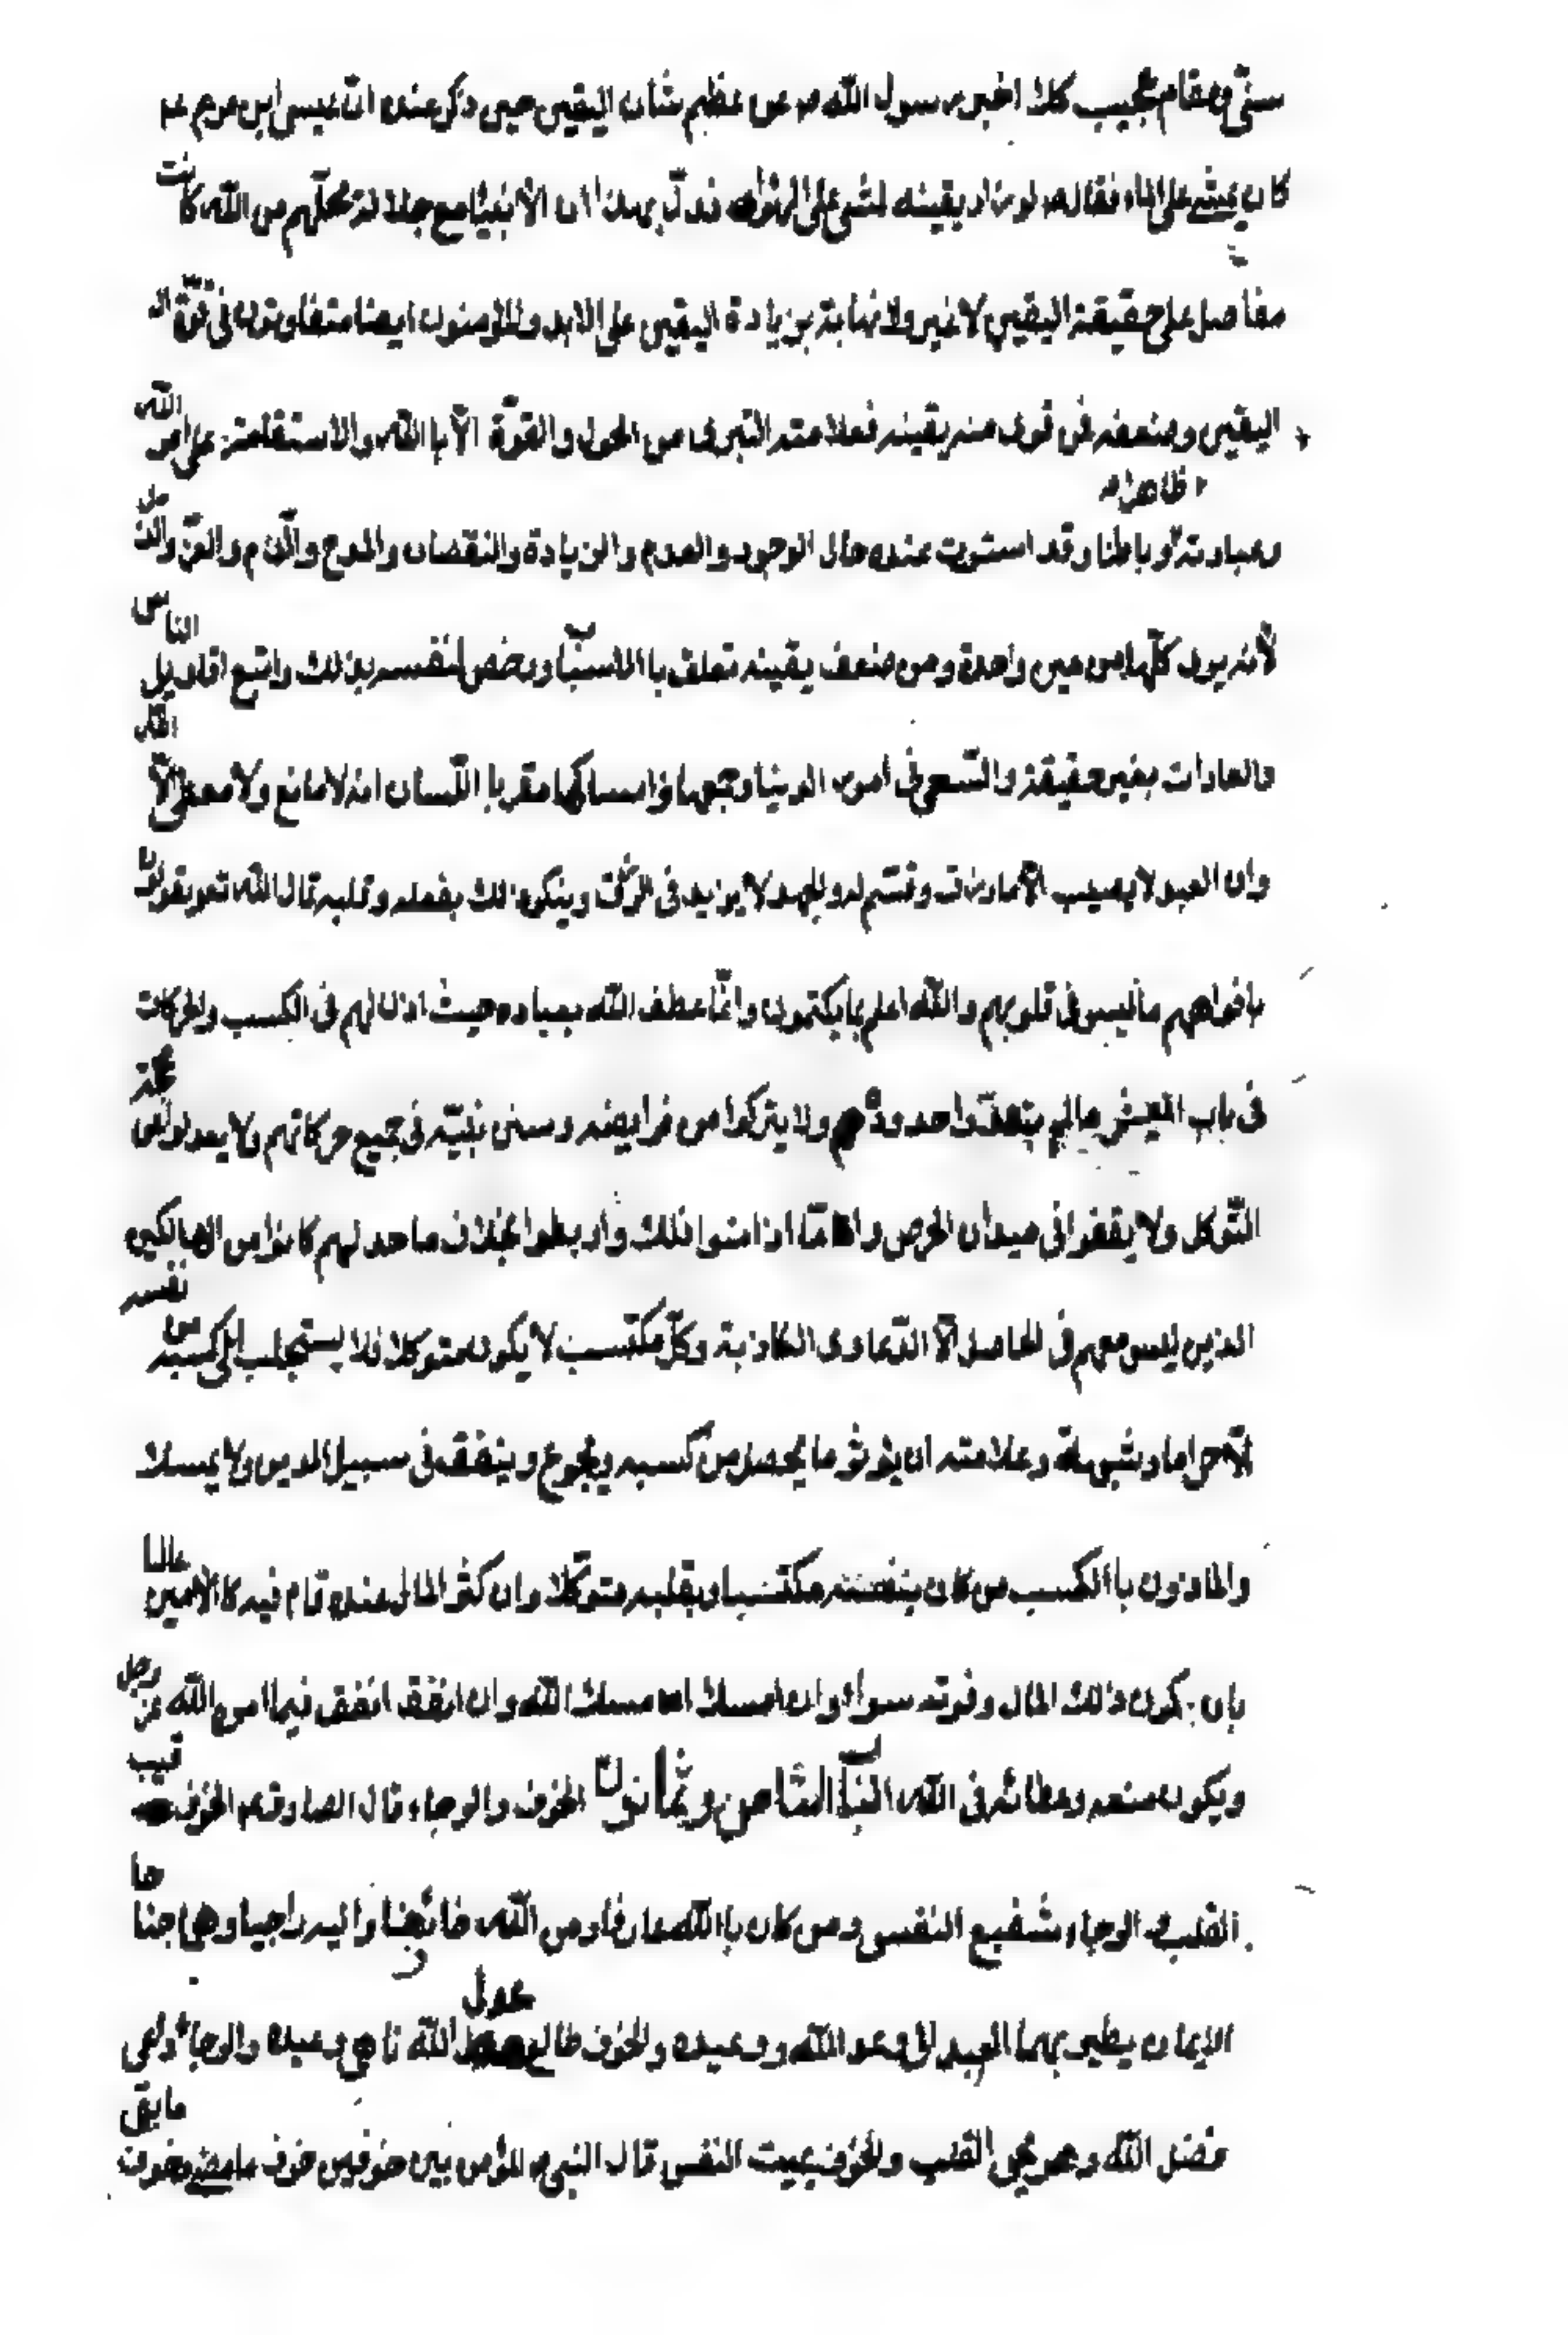 سنّى ومقام عجيب كذلك اخبر رسول الله ص عن عظم شان اليقين حين ذكر عنده ان عيسى ابن مريم ع
كان يمشى على الماء فقال ص لو زاد يقينه لمشى على الهواء فدلّ بهذا ان الانبياء مع جلالة محلّهم من الله كانت
تفاضل على حقيقة اليقين لا غير ولا نهاية بزيادة اليقين على الابد والمؤمنون ايضا متفاوتون فى قوّة
اليقين وضعفه فمن قوى منه يقينه فعلامته التبرى من الحول والقوّة الّا باالله والاستقامة على امر الله
وعبادته ظاهرا وباطنا وقد استوت عنده حال الوجود والعدم والزيادة والنقصان والمدح والذّم والعزّ والذّل
لأنه يرى كلّها من عين واحدة ومن ضعف يقينه تعلق باالاسباب ورخص لنفسه بذلك واتبع اقاويل الناس
والعادات بغير حقيقة والسّعى فى امور الدنيا وجمعها وامساكها مقر باالّلسان انه لا مانع ولا معطى الّا الله
وان العبد لا يصيب الّا ما رزق وقسّم له والجهد لا يزيد فى الرّزق وينكر ذلك بفعله وقلبه قال الله تعه يقولون
بافواههم ما ليس فى قلوبهم والله اعلم بما يكتمون وانّما عطف الله بعباده حيث اذن لهم فى الكسب والحركات
فى باب العيش مالم يتعدّوا حدوده ولا يتركوا من فرايضه وسنن نبيّه فى جميع حركاتهم ولا يعدلوا عن محجّة
التّوكل ولا يقفوا فى ميدان الحرص وامّا اذا نسوا ذلك وارتبطوا بخلاف ما حد لهم كانوا من الهالكين
الذين ليس معهم فى الحاصل الّا الدّعاوى الكاذبة وكلّ مكتسب لا يكون متوكلا فلا يستجلب من كسبه الى نفسه
الّا حراما وشبهة وعلامته ان يؤثر ما يحصل من كسبه ويجوع وينفقه فى سبيل الدين ولا يمسك
والماذون باالكسب من كان بنفسه مكتسبا وبقلبه متوكلا وان كثر المال عنده قام فيه كالامين عالما
بان يكون ذلك المال وفوته سواء وان امسك امسك لله وان انفق انفق فيما امره الله عزّ وجل
ويكون منعه وعطائه فى الله الباب الثامن وثمانون الخوف والرجاء قال الصادق ع الخوف رقيب
القلب والرجاء شفيع النفس ومن كان باالله عارفا ومن الله خائفا واليه راجيا وهما جناحا
الايمان يطير بهما العبد الى وعد الله ووعيده والخوف طالع عدل الله ناهى وعيده والرجاء داعى
فضل الله وهو يحيى القلب والخوف يميت النفس قال النبى ص المؤمن بين خوفين خوف ما مضى وخوف ما بقى